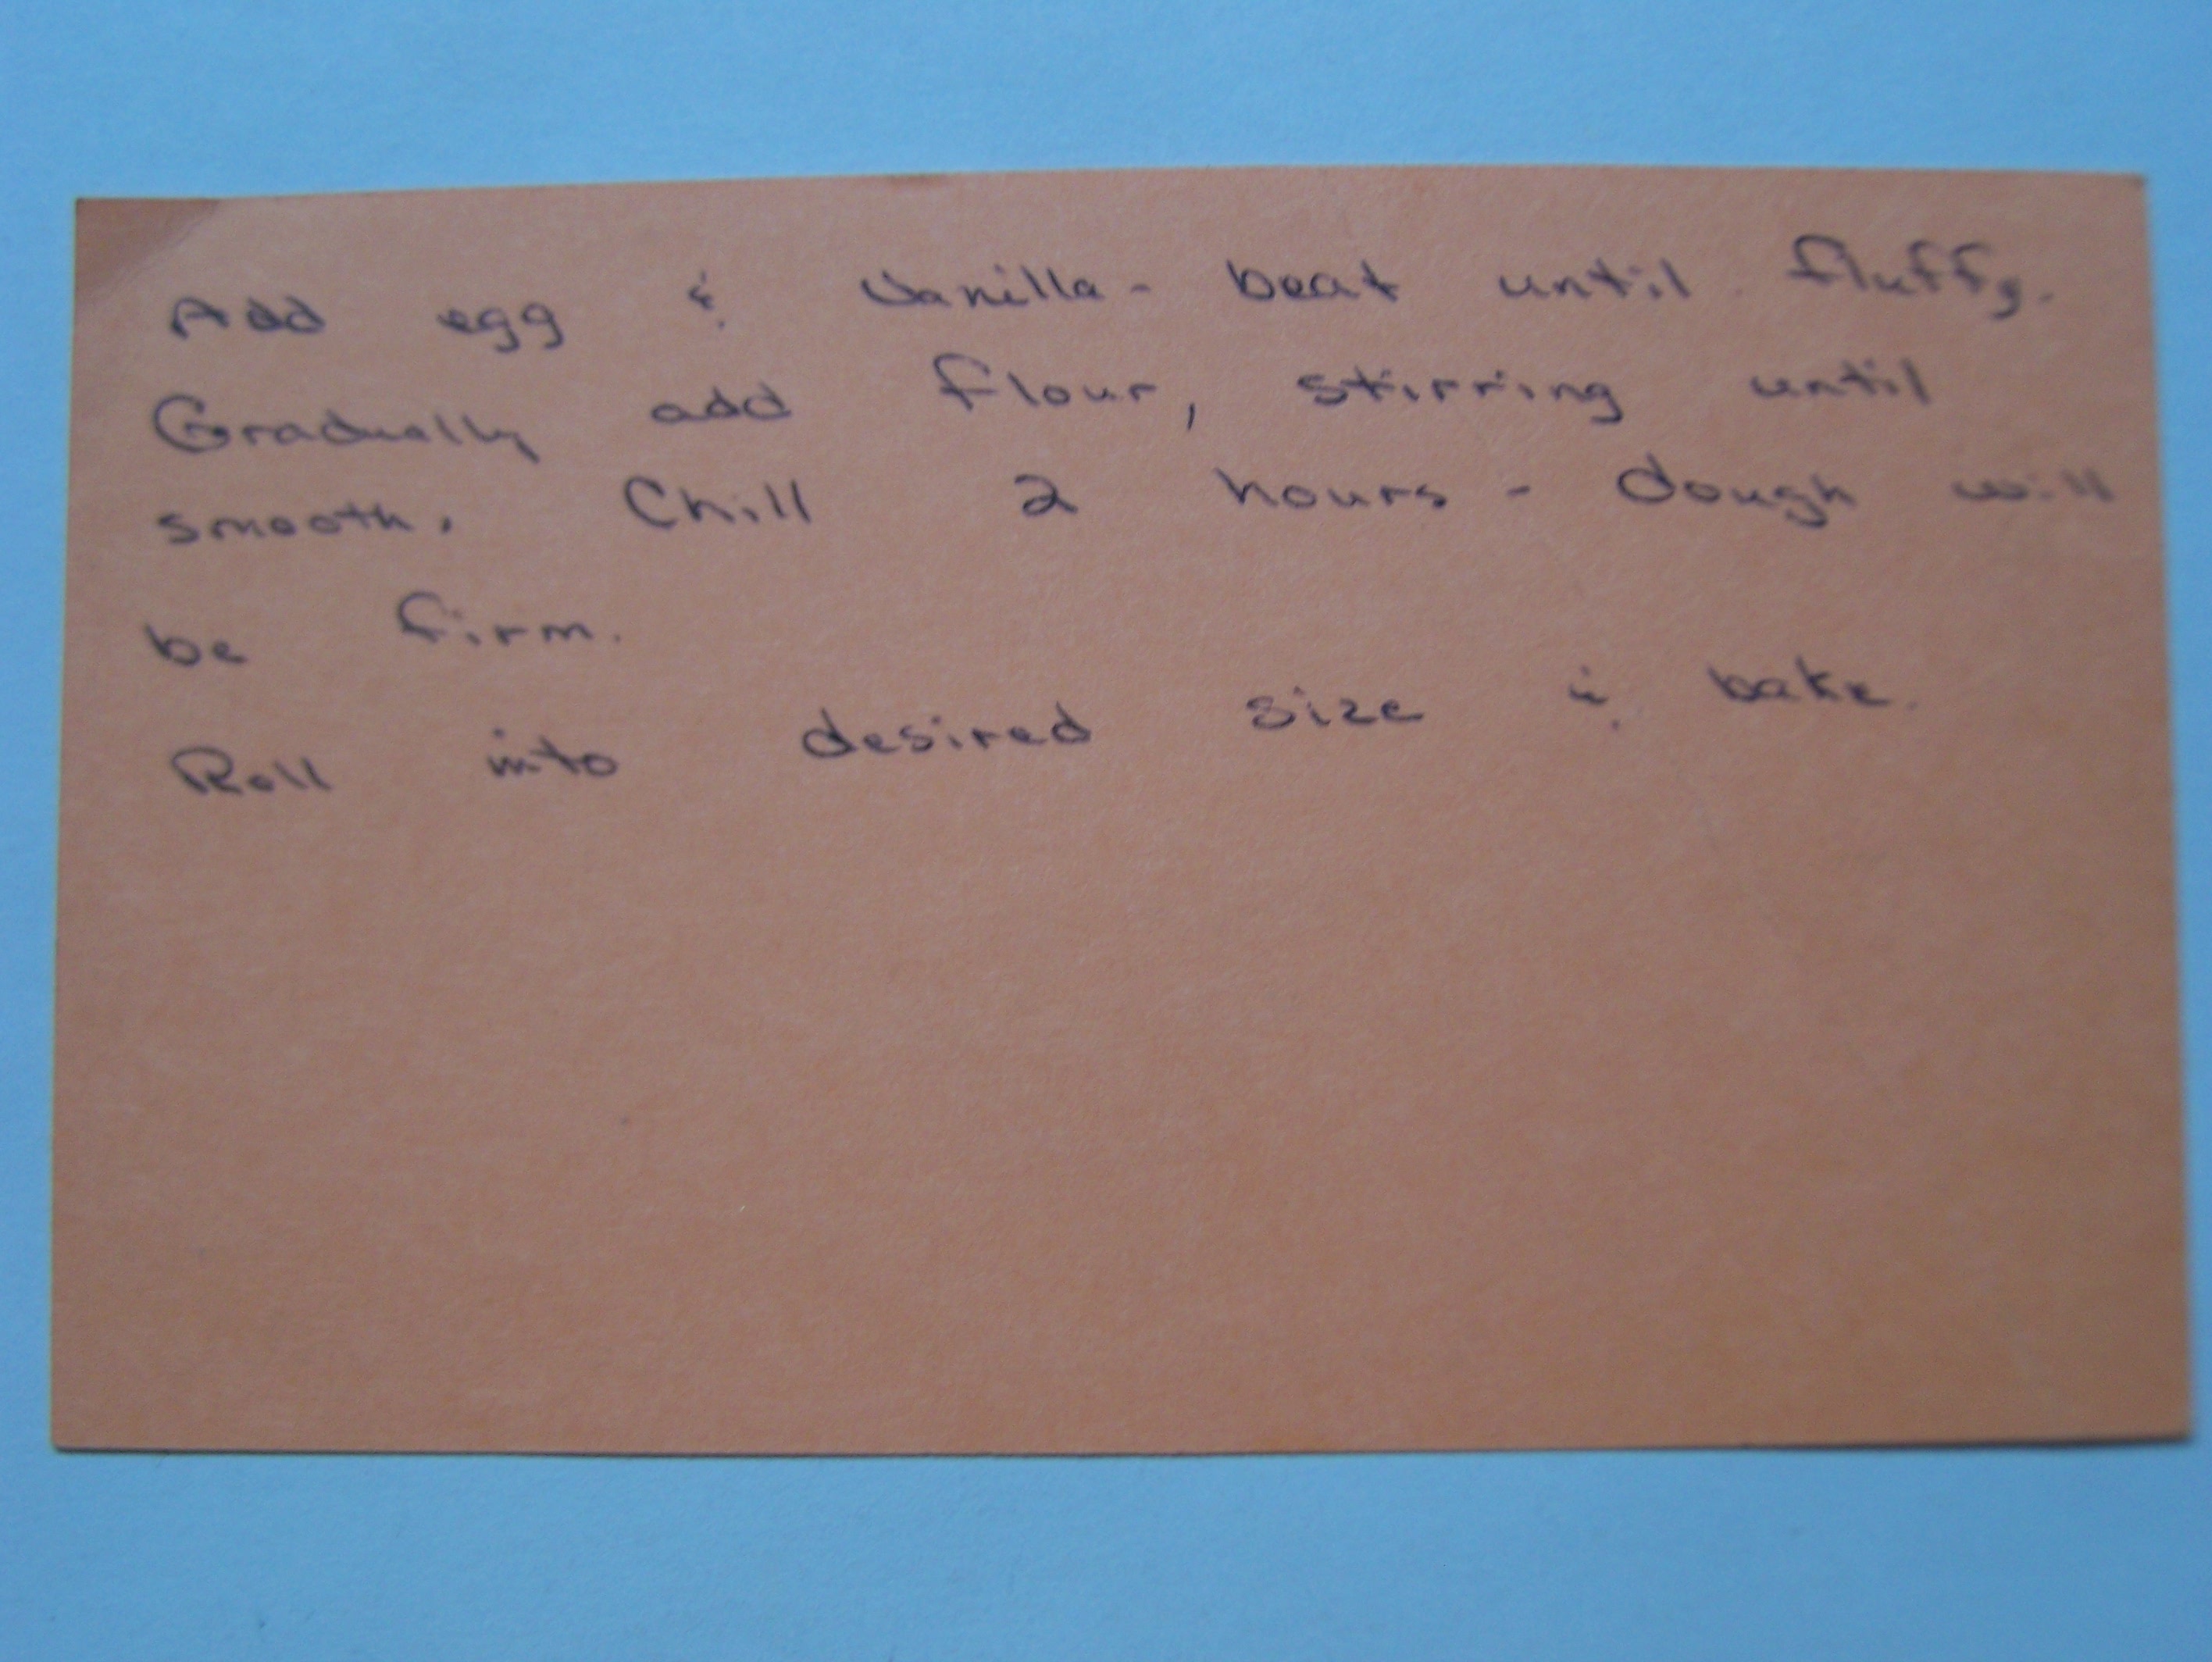 Add egg & Vanilla - beat until fluffy.
Gradually add flour, stirring until
smooth. Chill 2 hours - dough will
be firm.
Roll into desired size & bake.